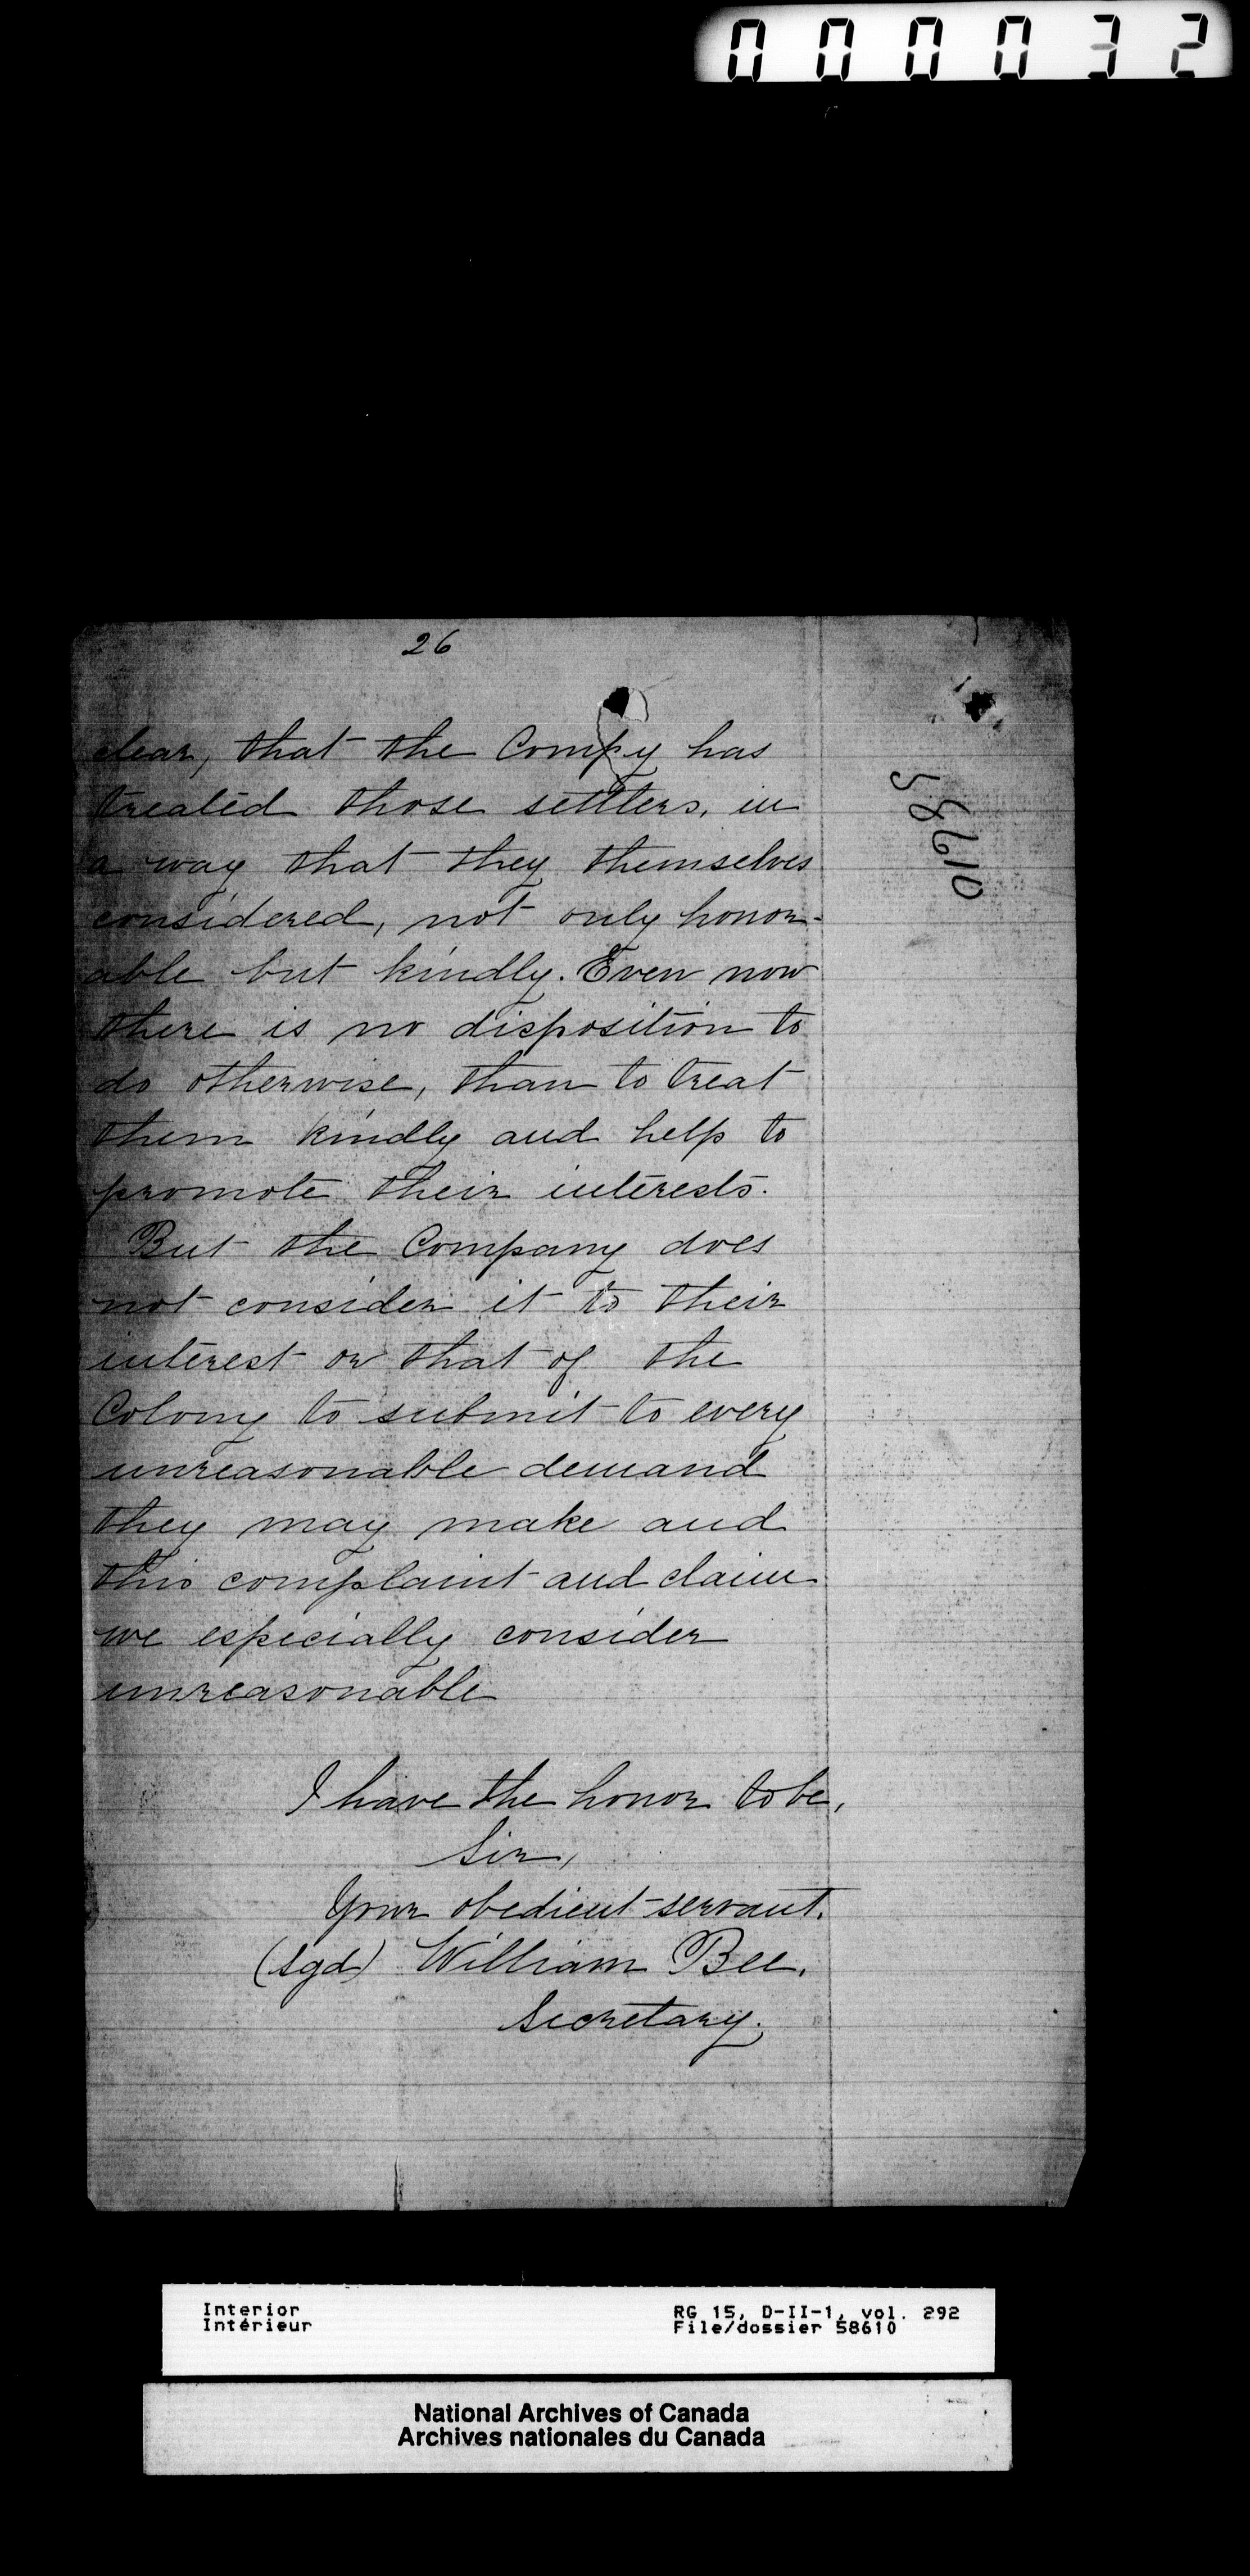 000032
26
clear, that the Compy has
treated those settlers, in
a way that they themselves
considered, not only honor-
able but kindly. Even now
there is no disposition to
do otherwise, than to treat
them kindly and help to
promote their interests.
But the Company does
not consider it to their
interest or that of the
Colony to submit to every
unreasonable demand
they may make and
this complaint and claim
we especially consider
unreasonable
I have the honor to be,
Sir,
Your obedient servant.
(sgd) William Bee.
Secretary.
58610
Interior
Intérieur
RG 15, D-II-1, vol. 292
File/dossier 58610
National Archives of Canada
Archives nationales du Canada